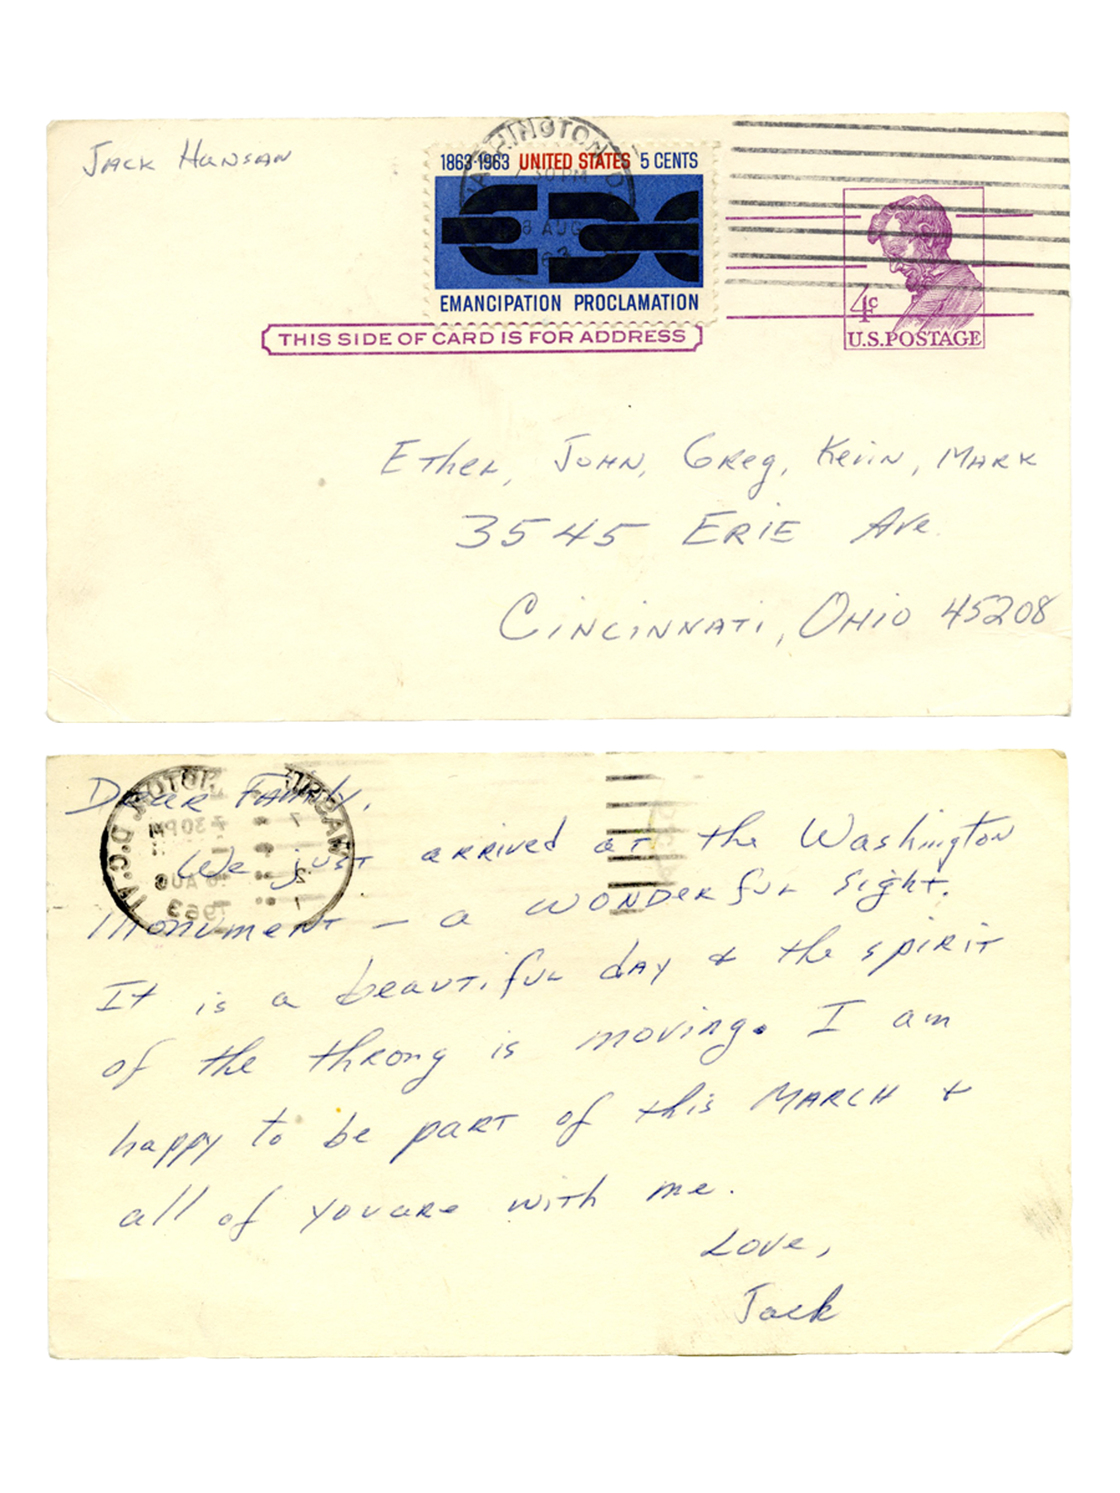 Jack Hansan
WASHINGTON, D
7 30 PM
28 AUG
1963
1863-1963 UNITED STATES 5 CENTS
EMANCIPATION PROCLAMATION
4c
U.S.POSTAGE
THIS SIDE OF CARD IS FOR ADDRESS
Ethel, John, Greg, Kevin, Mark
3545 Erie Ave.
Cincinnati, Ohio 45208
Dear Family,
We just arrived at the Washington
Monument – a wonderful sight.
It is a beautiful day & the spirit
of the throng is moving. I am
happy to be part of this MARCH &
all of you are with me.
Love,
Jack
WASHINGTON, D.C.
7 30 PM
AUG
1963